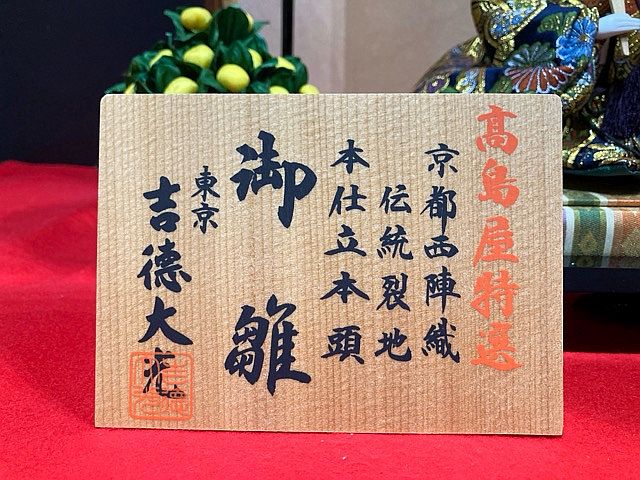 高島屋特選
京都西陣織
伝統裂地
本仕立本頭
御雛
東京
吉德大光